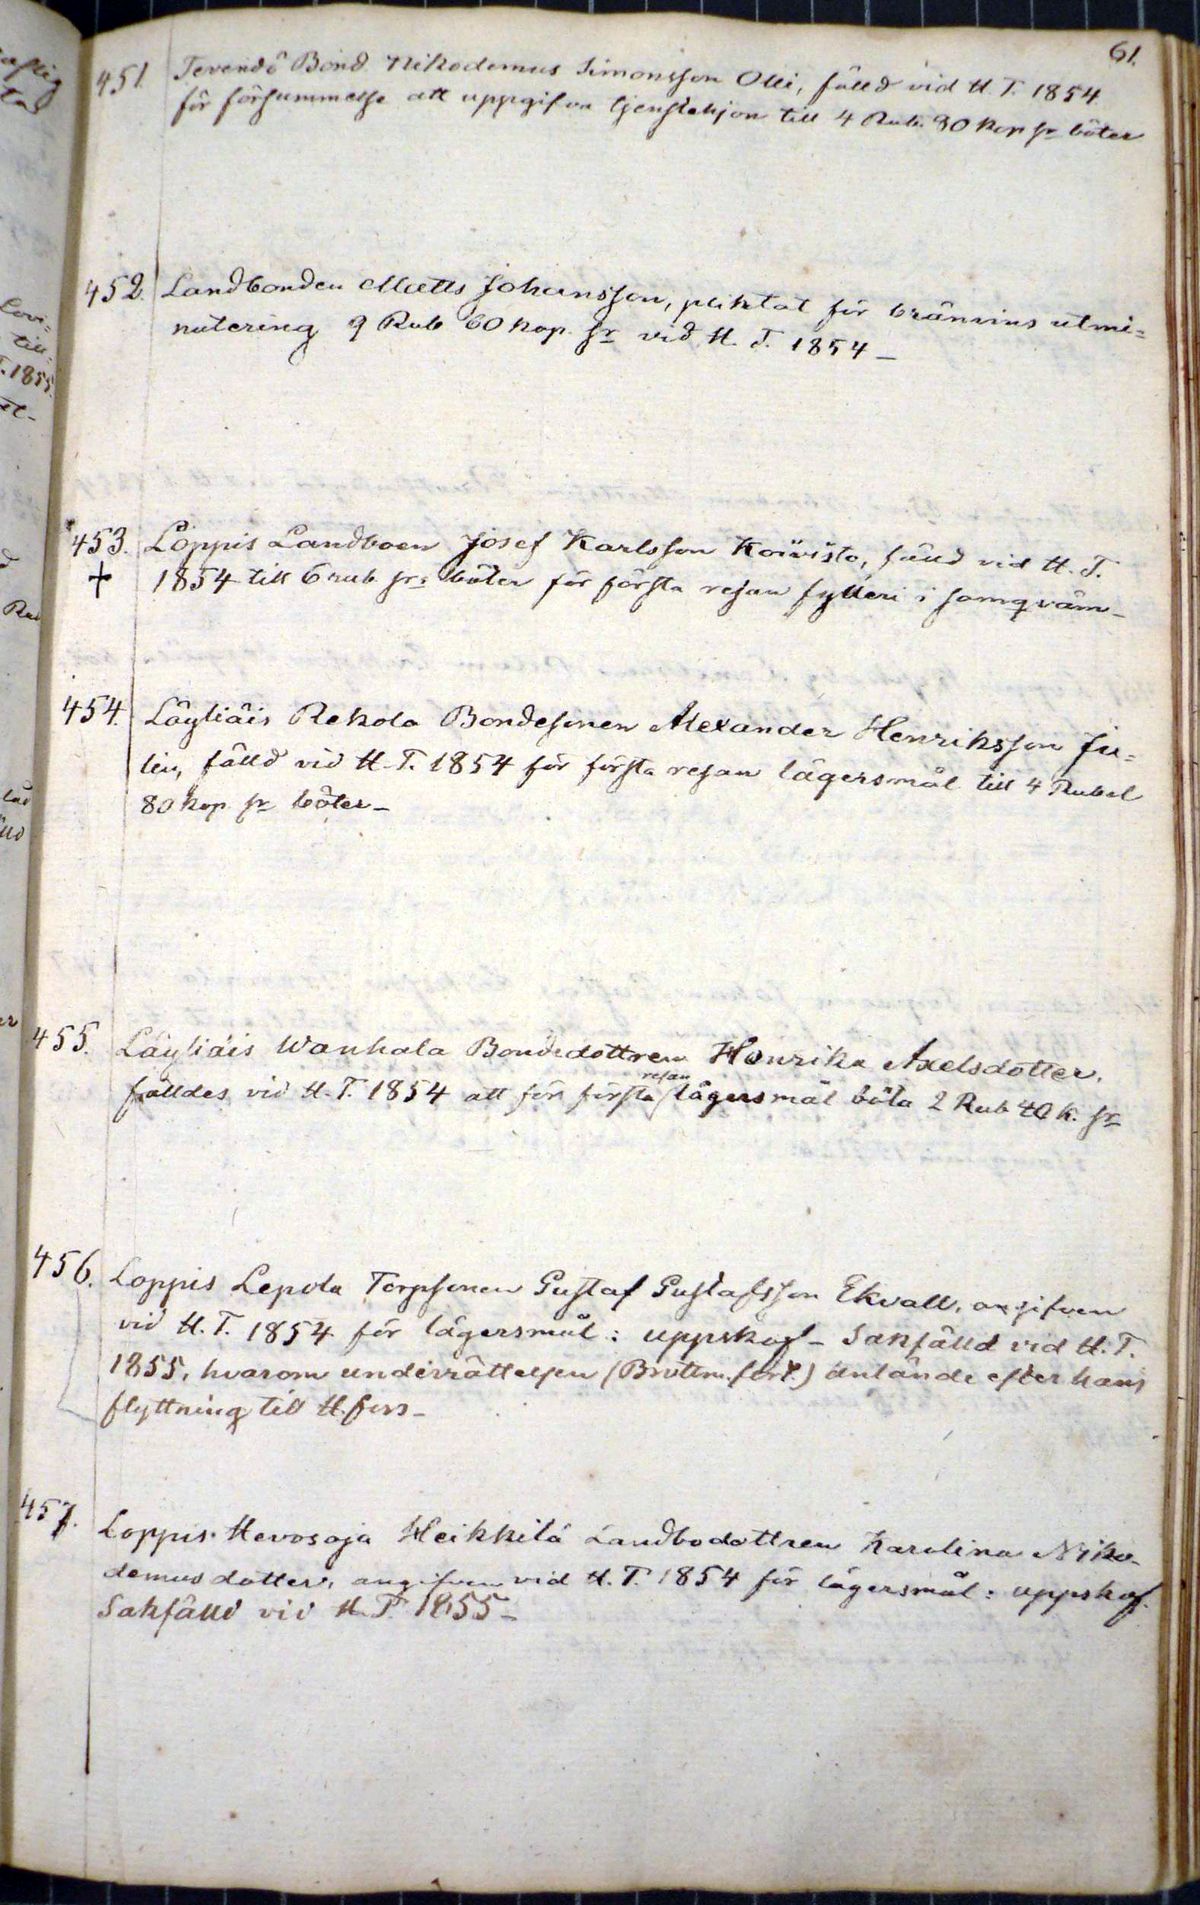 61.
451. Tevendö Bond. Nikodemus Simonsson Olli, fälld vid H. T. 1854
för försummelse att uppgifva tjenstehjon till 4 Rub. 80 kop sr böter
452. Landbonden Matts Johansson, pliktat för bränvins utmi=
nutering 9 Rub 60 kop. sr vid H. T. 1854 –
453. Loppis Landboen Josef Karlsson Koivisto, fälld vid H. T.
+ 1854 till 6 rub. sr: böter för första resan fylleri i samqväm –
454. Läyliäis Rekola Bondesonen Alexander Henriksson Ju=
lin, fälld vid H. T. 1854 för första resan lägersmål till 4 Rubel
80 kop sr böter –
455. Läyliäis Wanhala Bondedottren Henrika Axelsdotter,
resan
fälldes vid H. T. 1854 att för första lägersmål böta 2 Rub 40 k. sr
456. Loppis Lepola Torpsonen Gustaf Gustafsson Ekvall, angifven
vid H. T. 1854 för lägersmål: uppskof – Sakfälld vid H. T.
1855, hvarom underrättelsen (Brottm.fört.) anlände efter hans
flyttning till H.fors –
457. Loppis Hevosoja Heikkilä Landbodottren Karolina Niko-
demusdotter, angifven vid H. T. 1854 för lägersmål: uppskof.
Sakfälld vid H. T. 1855 –